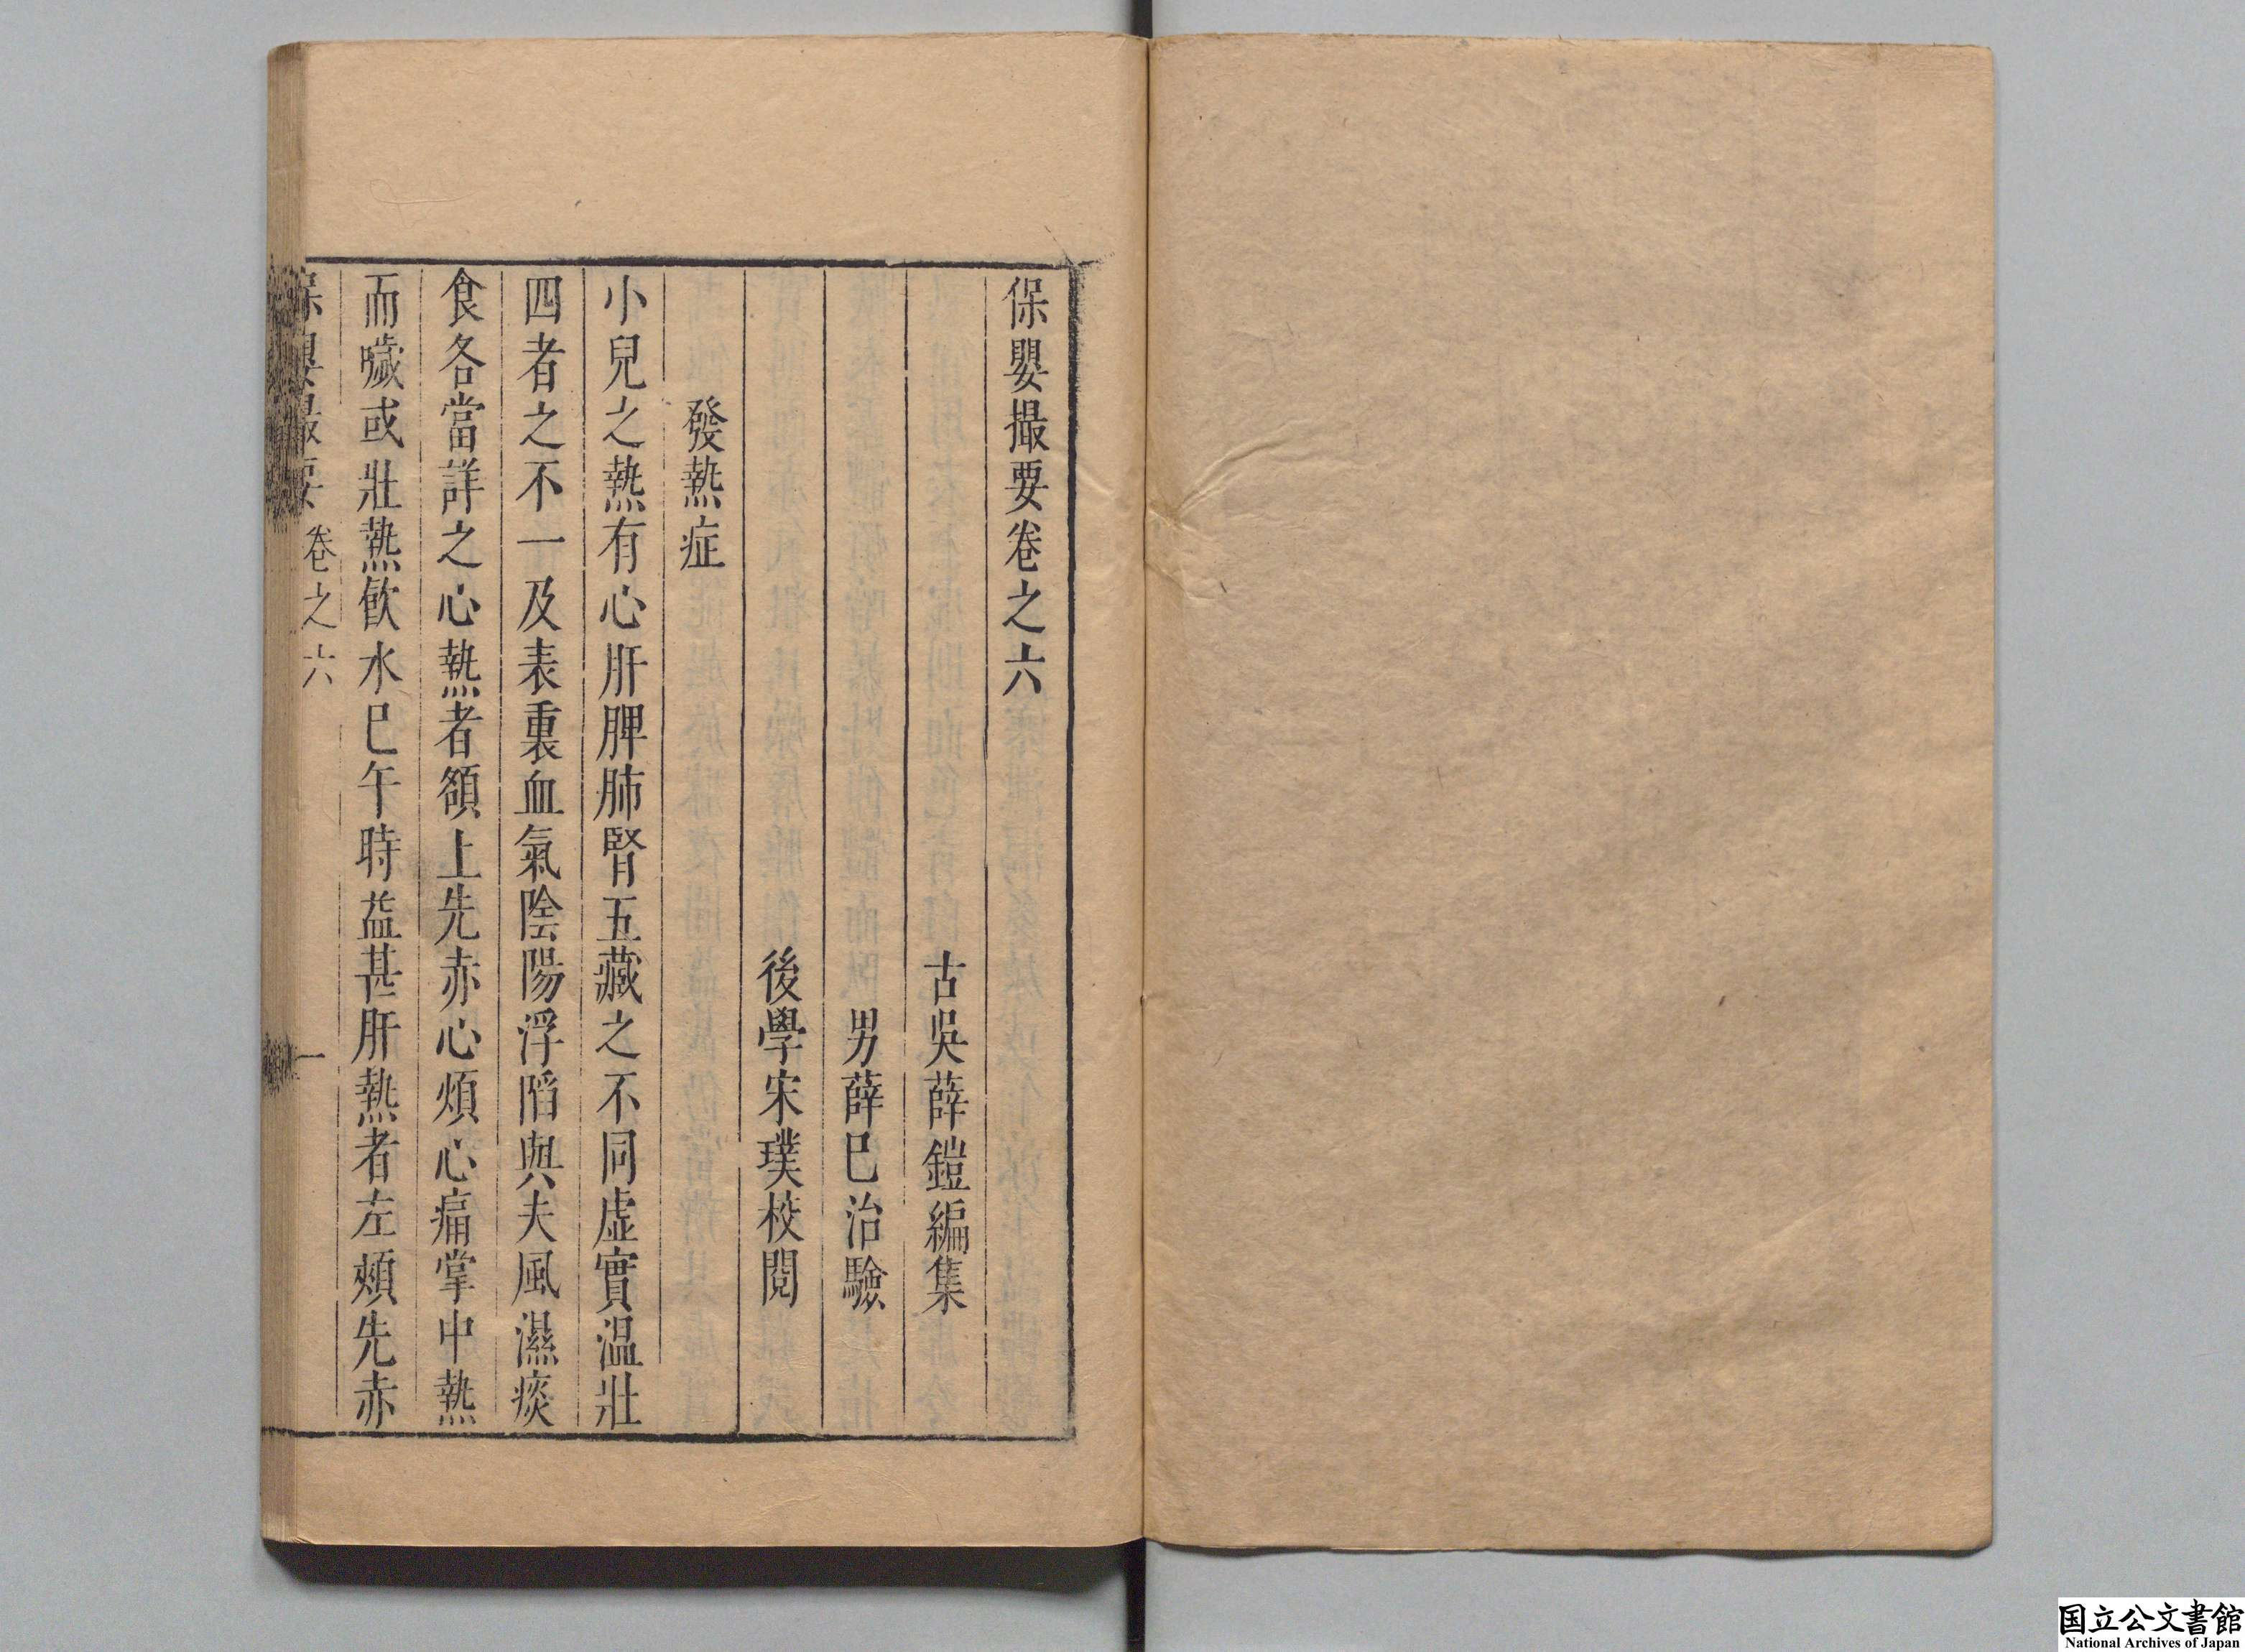 保嬰撮要卷之六
古吳薛鎧編集
男薛巳治驗
後學宋璞校閱
發熱症
小兒之熱有心肝脾肺腎五藏之不同虛實温壯
四者之不一及表裏血氣陰陽浮䧟與夫風濕痰
食各當詳之心熱者額上先赤心煩心痛掌中熱
而噦或壯熱飲水巳午時益甚肝熱者左頰先赤
保嬰撮要 卷之六 一
国立公文書館
National Archives of Japan